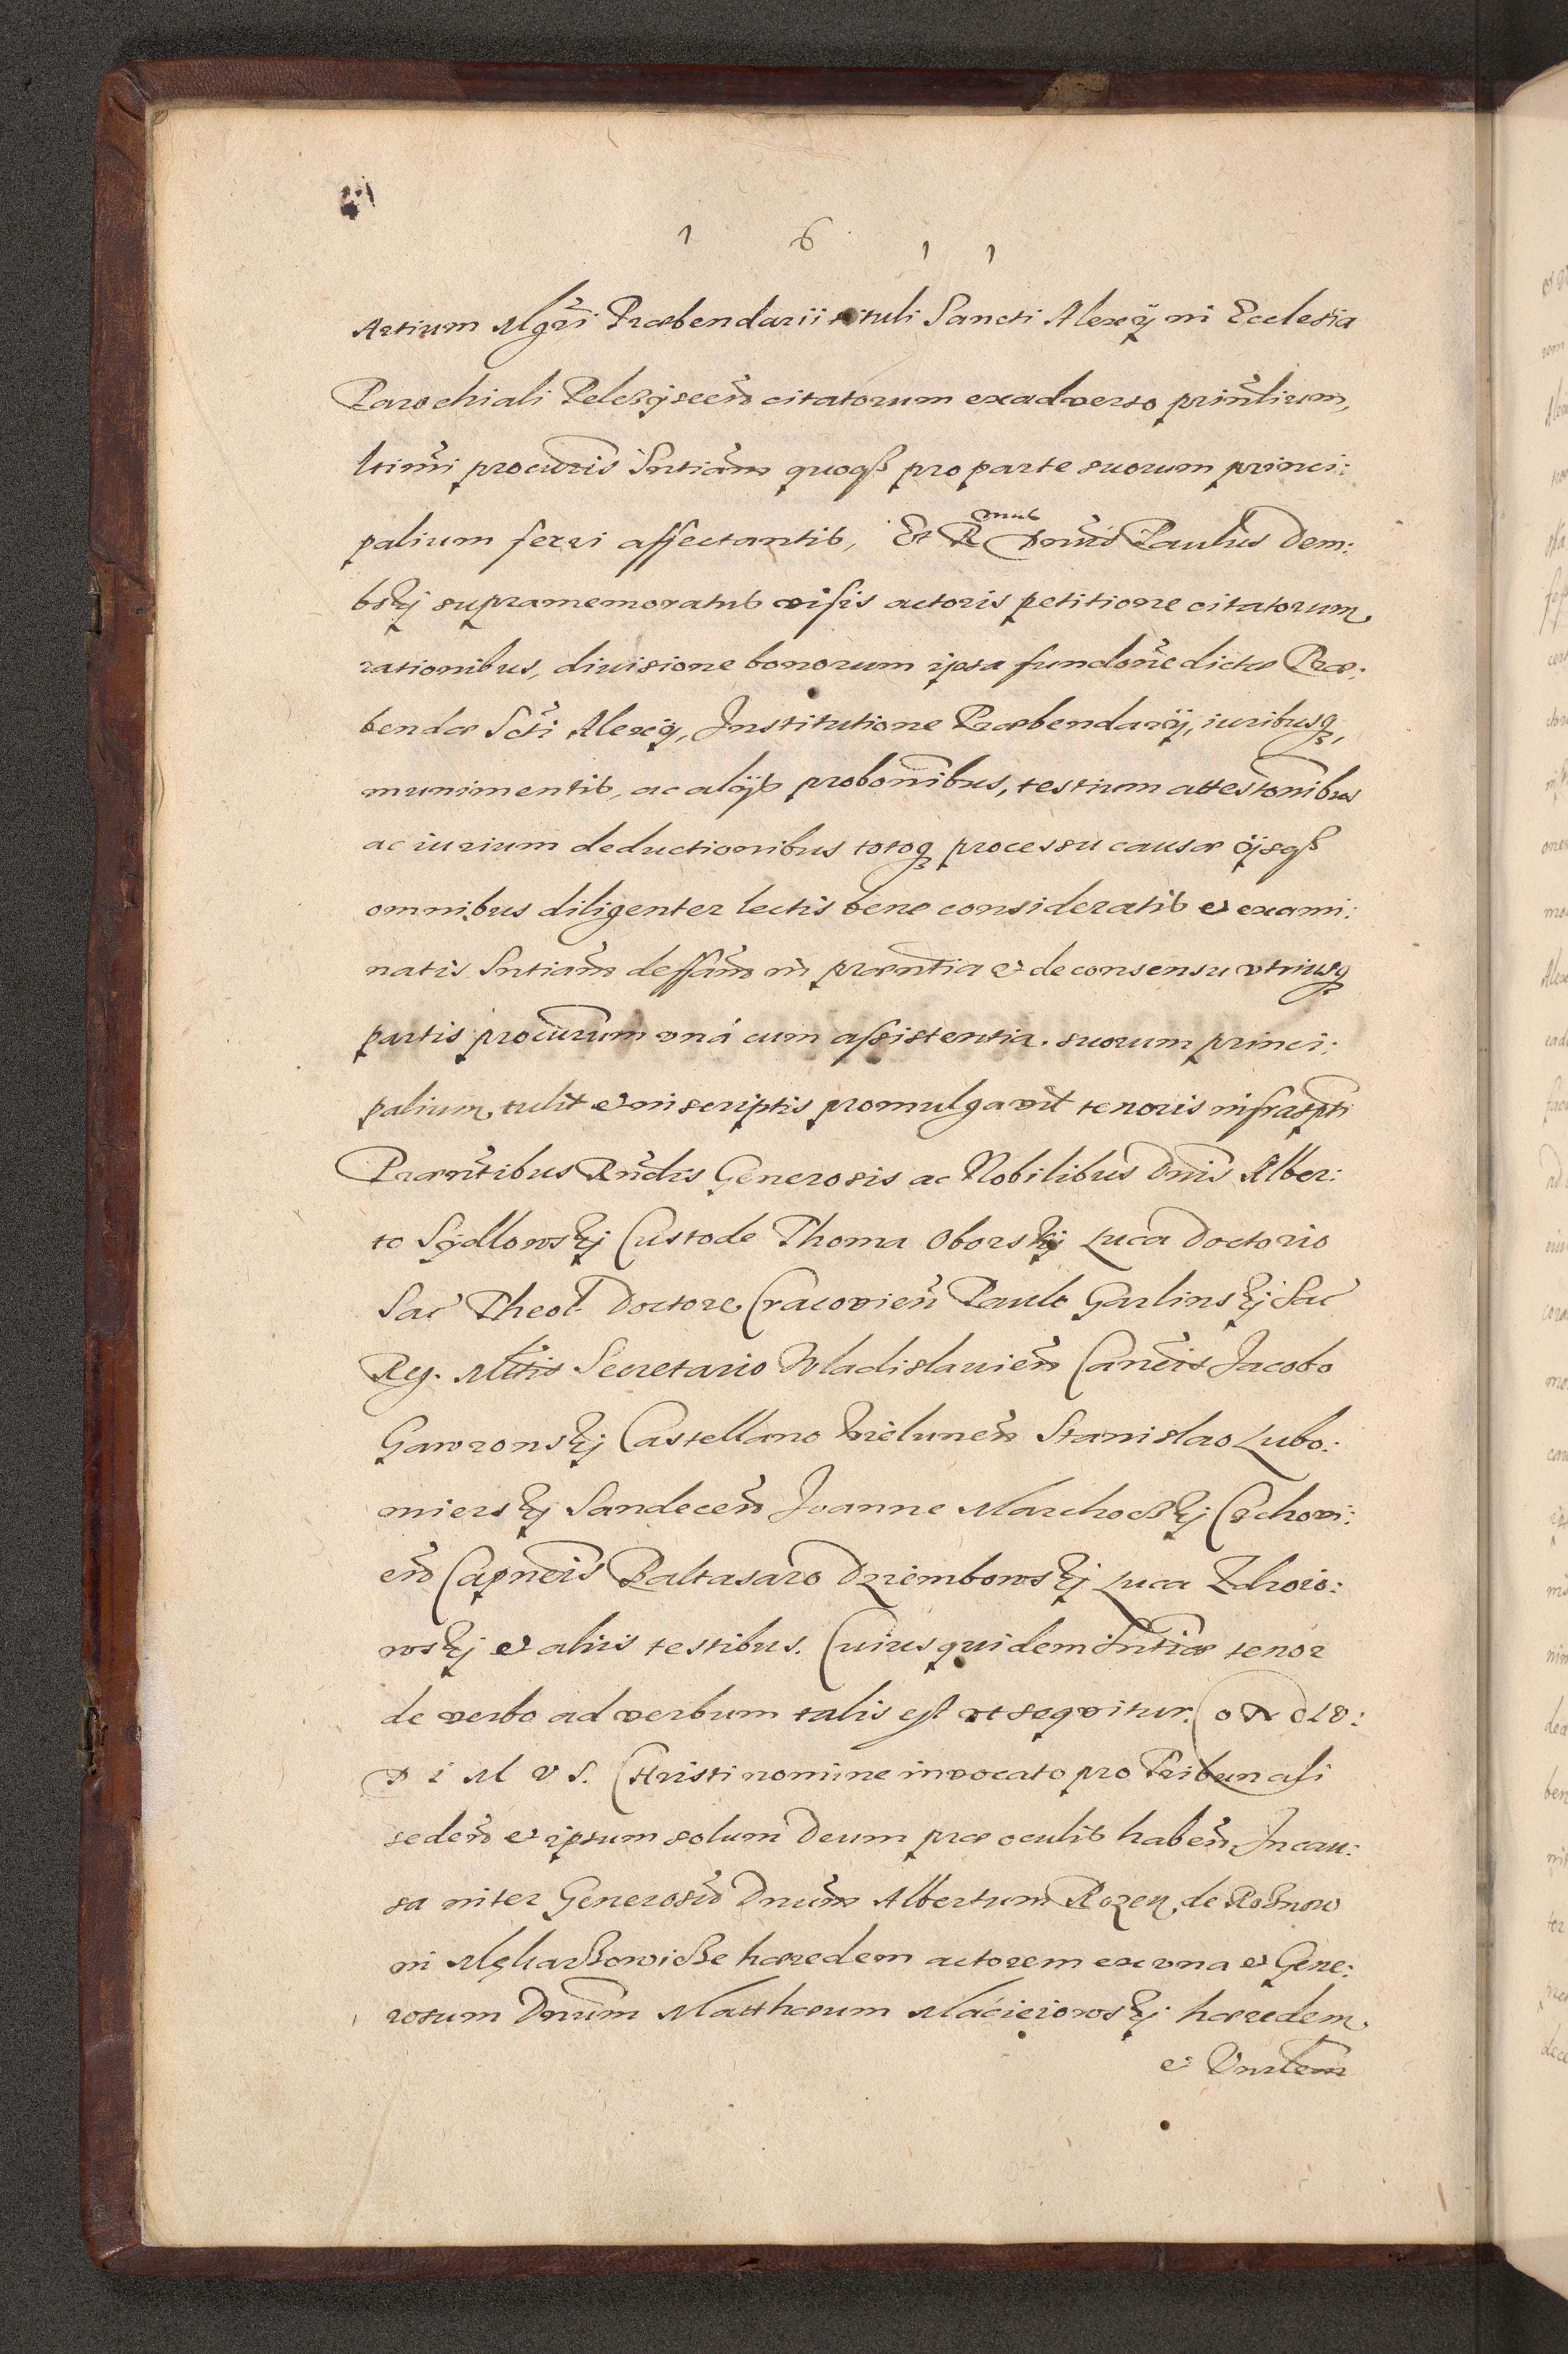 1 6 1 1
Artium Mgri Præbendarii tituli Sancti Alexij in Ecclesia
Parochiali citatorum exadverso prinlium,
ltimi procuris Sntiam quoqȝ pro parte suorum princi:
palium ferri affectantis, Et R mus Dnus Paulus Dem:
bskj supramemoratus visis actoris petitione citatorum,
rationibus, divisione bonorum ipsa fundone dictæ Præ:
bendæ Scti Alexij, Institutione Præbendarij, iuribusqȝ,
munimentis, ac alijs probonibus, testium attestonibus
ac iurium deductionibus totoqȝ processu causæ ijsqȝ
omnibus diligenter lectis bene consideratis et exami:
natis Sntiam deffam in præntia et de consensu vtriusqȝ
partis procurum vná cum assistentia suorum princi:
palium, tulit et in scriptis promulgavit tenoris infraspti
Præntibus Rndis Generosis ac Nobilibus Dnis Alber:
to Sydlowskj Custode Thoma Oborskj Luca Doctorio
Sac Theol. Doctore Cracovien Paulo Garlinskj Sac
Reg. Mtis Secretario Wladislavien Cancis Jacobo
Gawronskj Castellano Wielunen Stanislao Lubo:
mierskj Sandecen Joanne Marchockj Czchovi:
en Capneis Baltasaro Dziembowskj Luca Zdroio:
wskj et aliis testibus. Cuius quidem Sntiæ tenor
de verbo ad verbum talis est vt seqvitur. C O N C L V:
D I M V S. Christi nomine invocato pro Tribunali
seden et ipsum solum Deum præ oculis haben. In cau:
sa inter Generosum Dnum Albertum Rozen, de Roßnow
in hæredem actorem ex vna et Gene:
rosum Dnum Matthæum Macieiowskj hæredem,
et